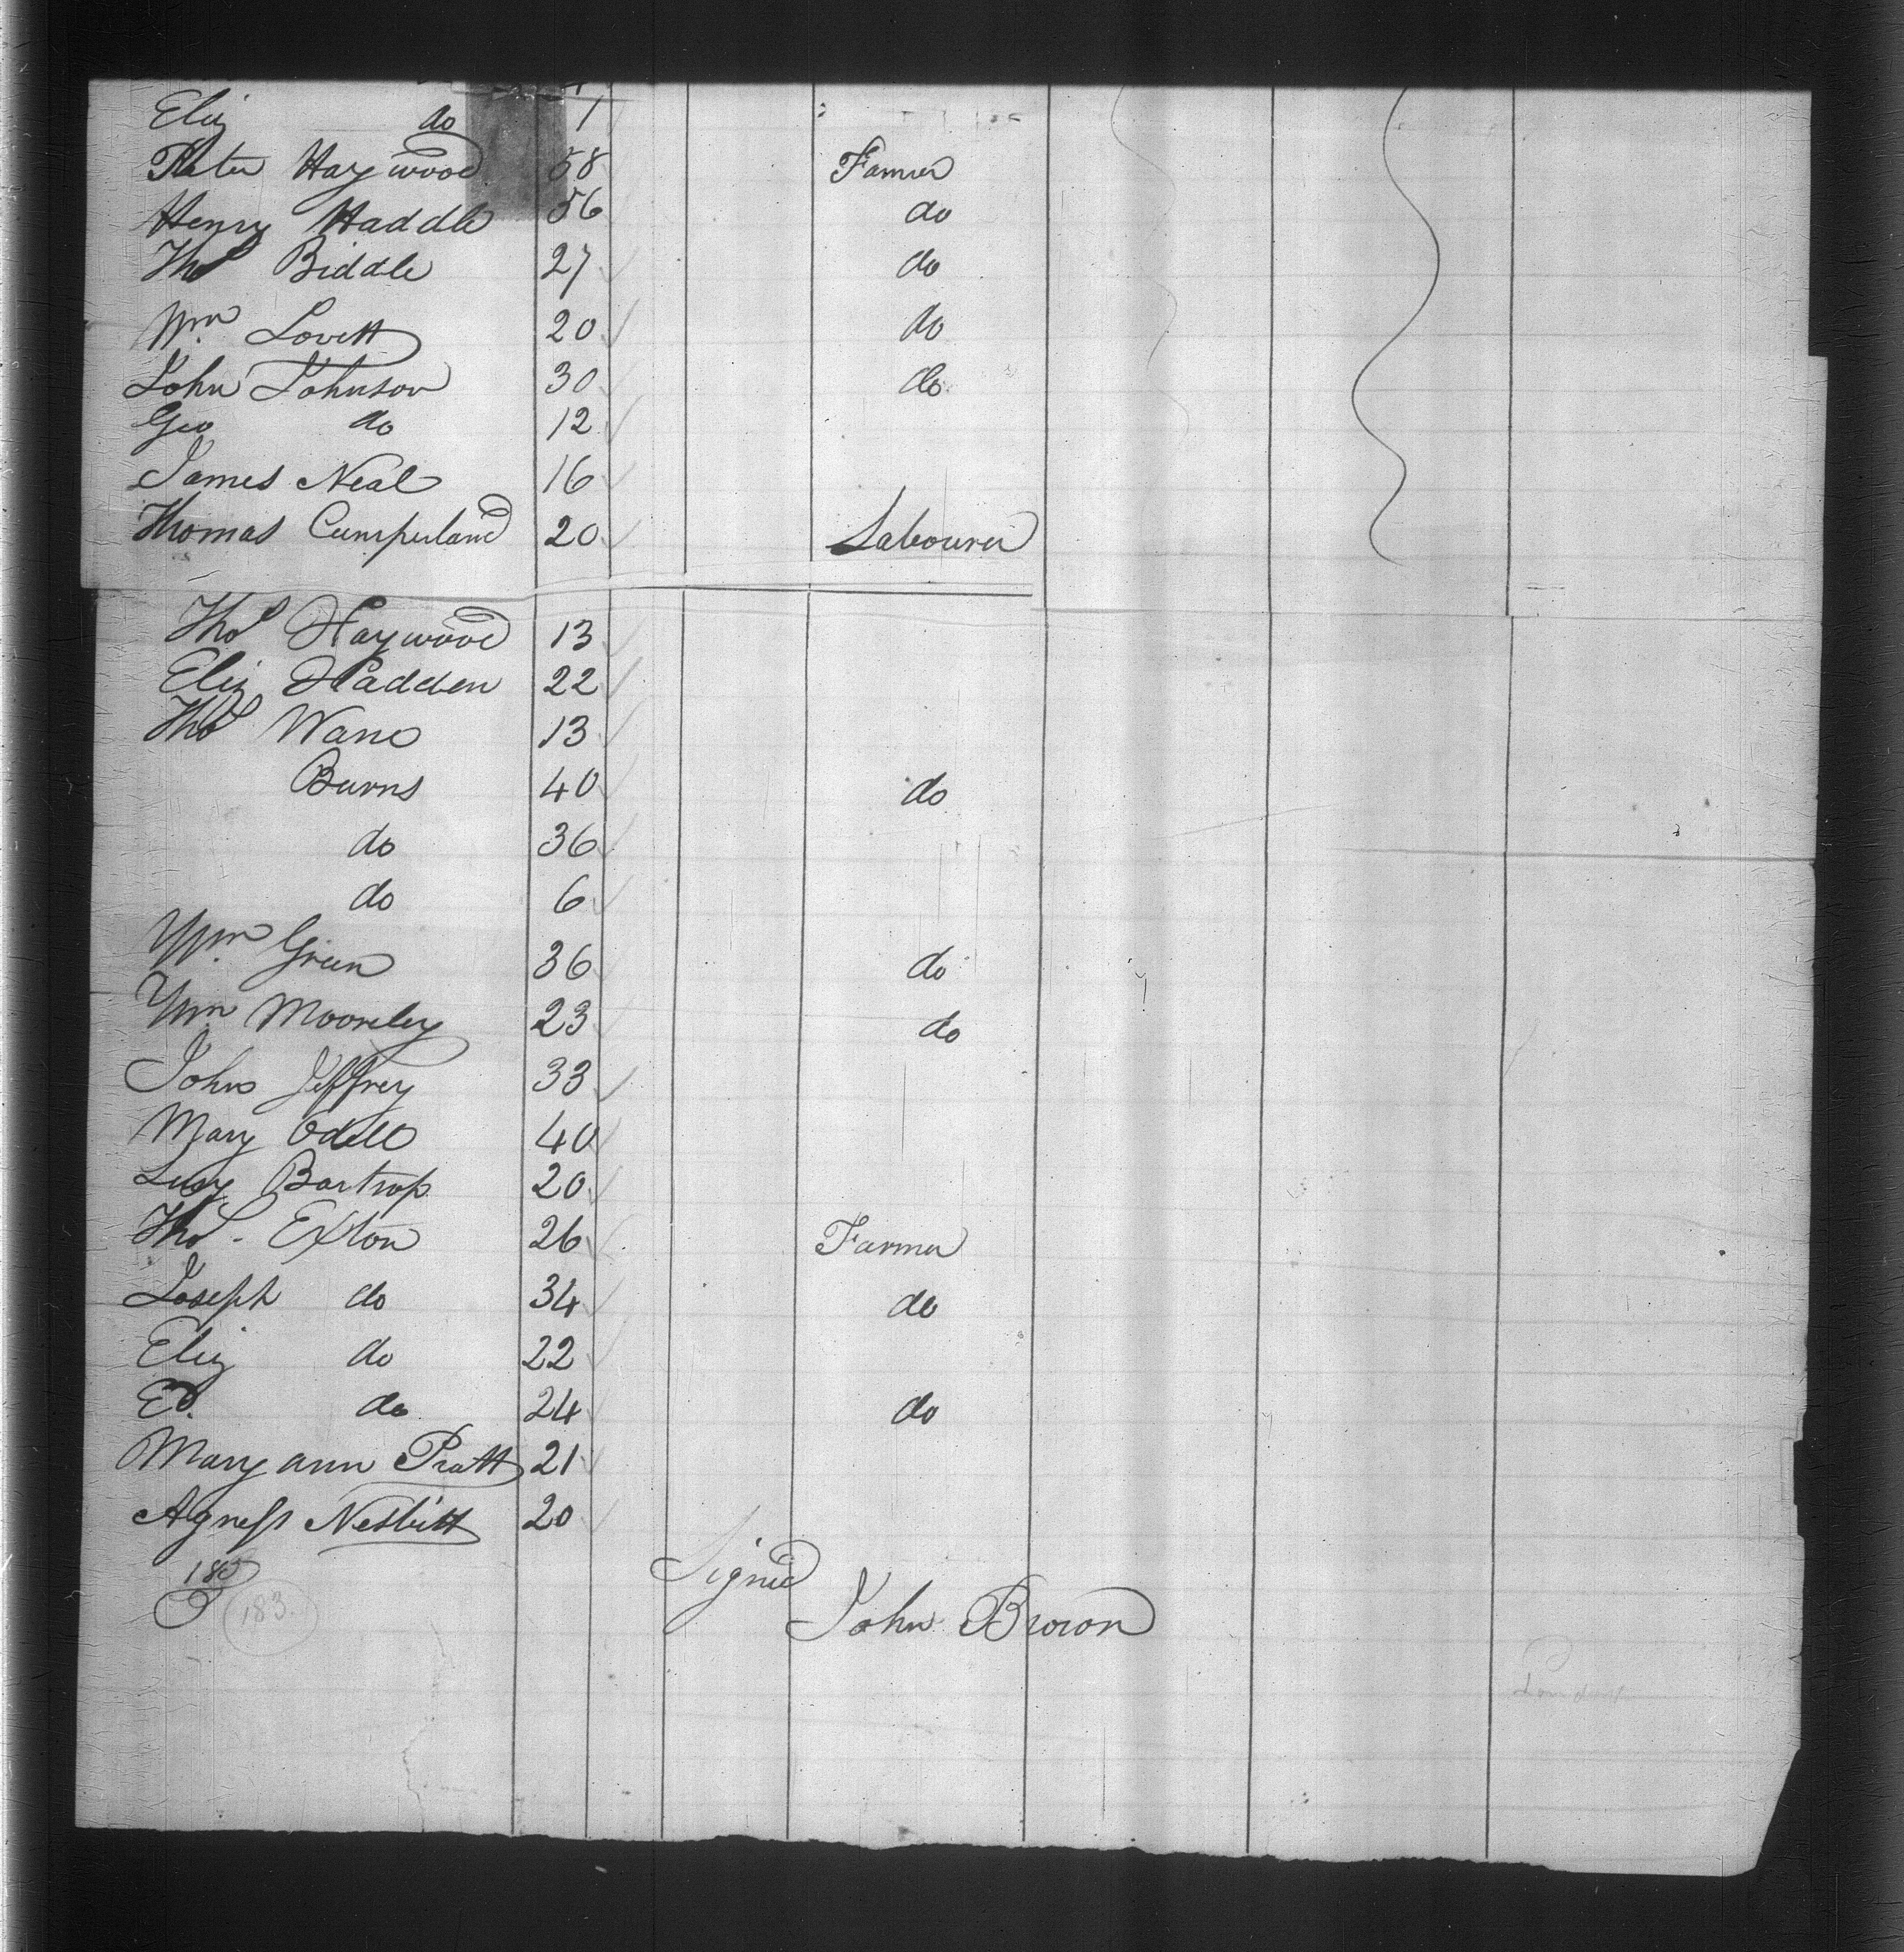 Eliz do 1
Peter Haywood 58 Farmer
Henry Haddle 56 do
Thos Biddle 27 do
Wm Lovett 20 do
John Johnson 30 do
Geo do 12
James Neal 16
Thomas Cumperland 20 Labourer
Thos Haywood 13
Eliz Hadden 22
Thos Ware 13
Burns 40 do
do 36
do 6
Wm Green 36 do
Wm Mooreley 23 do
John Jeffrey 33
Mary Odell 40
Lucy Bartrop 20
Thos - Exton 26 Farmer
Joseph do 34 do
Eliz do 22
Ed. do 24 do
Mary ann Pratt 21
Agness Nesbitt 20
Signed
183
John Brown